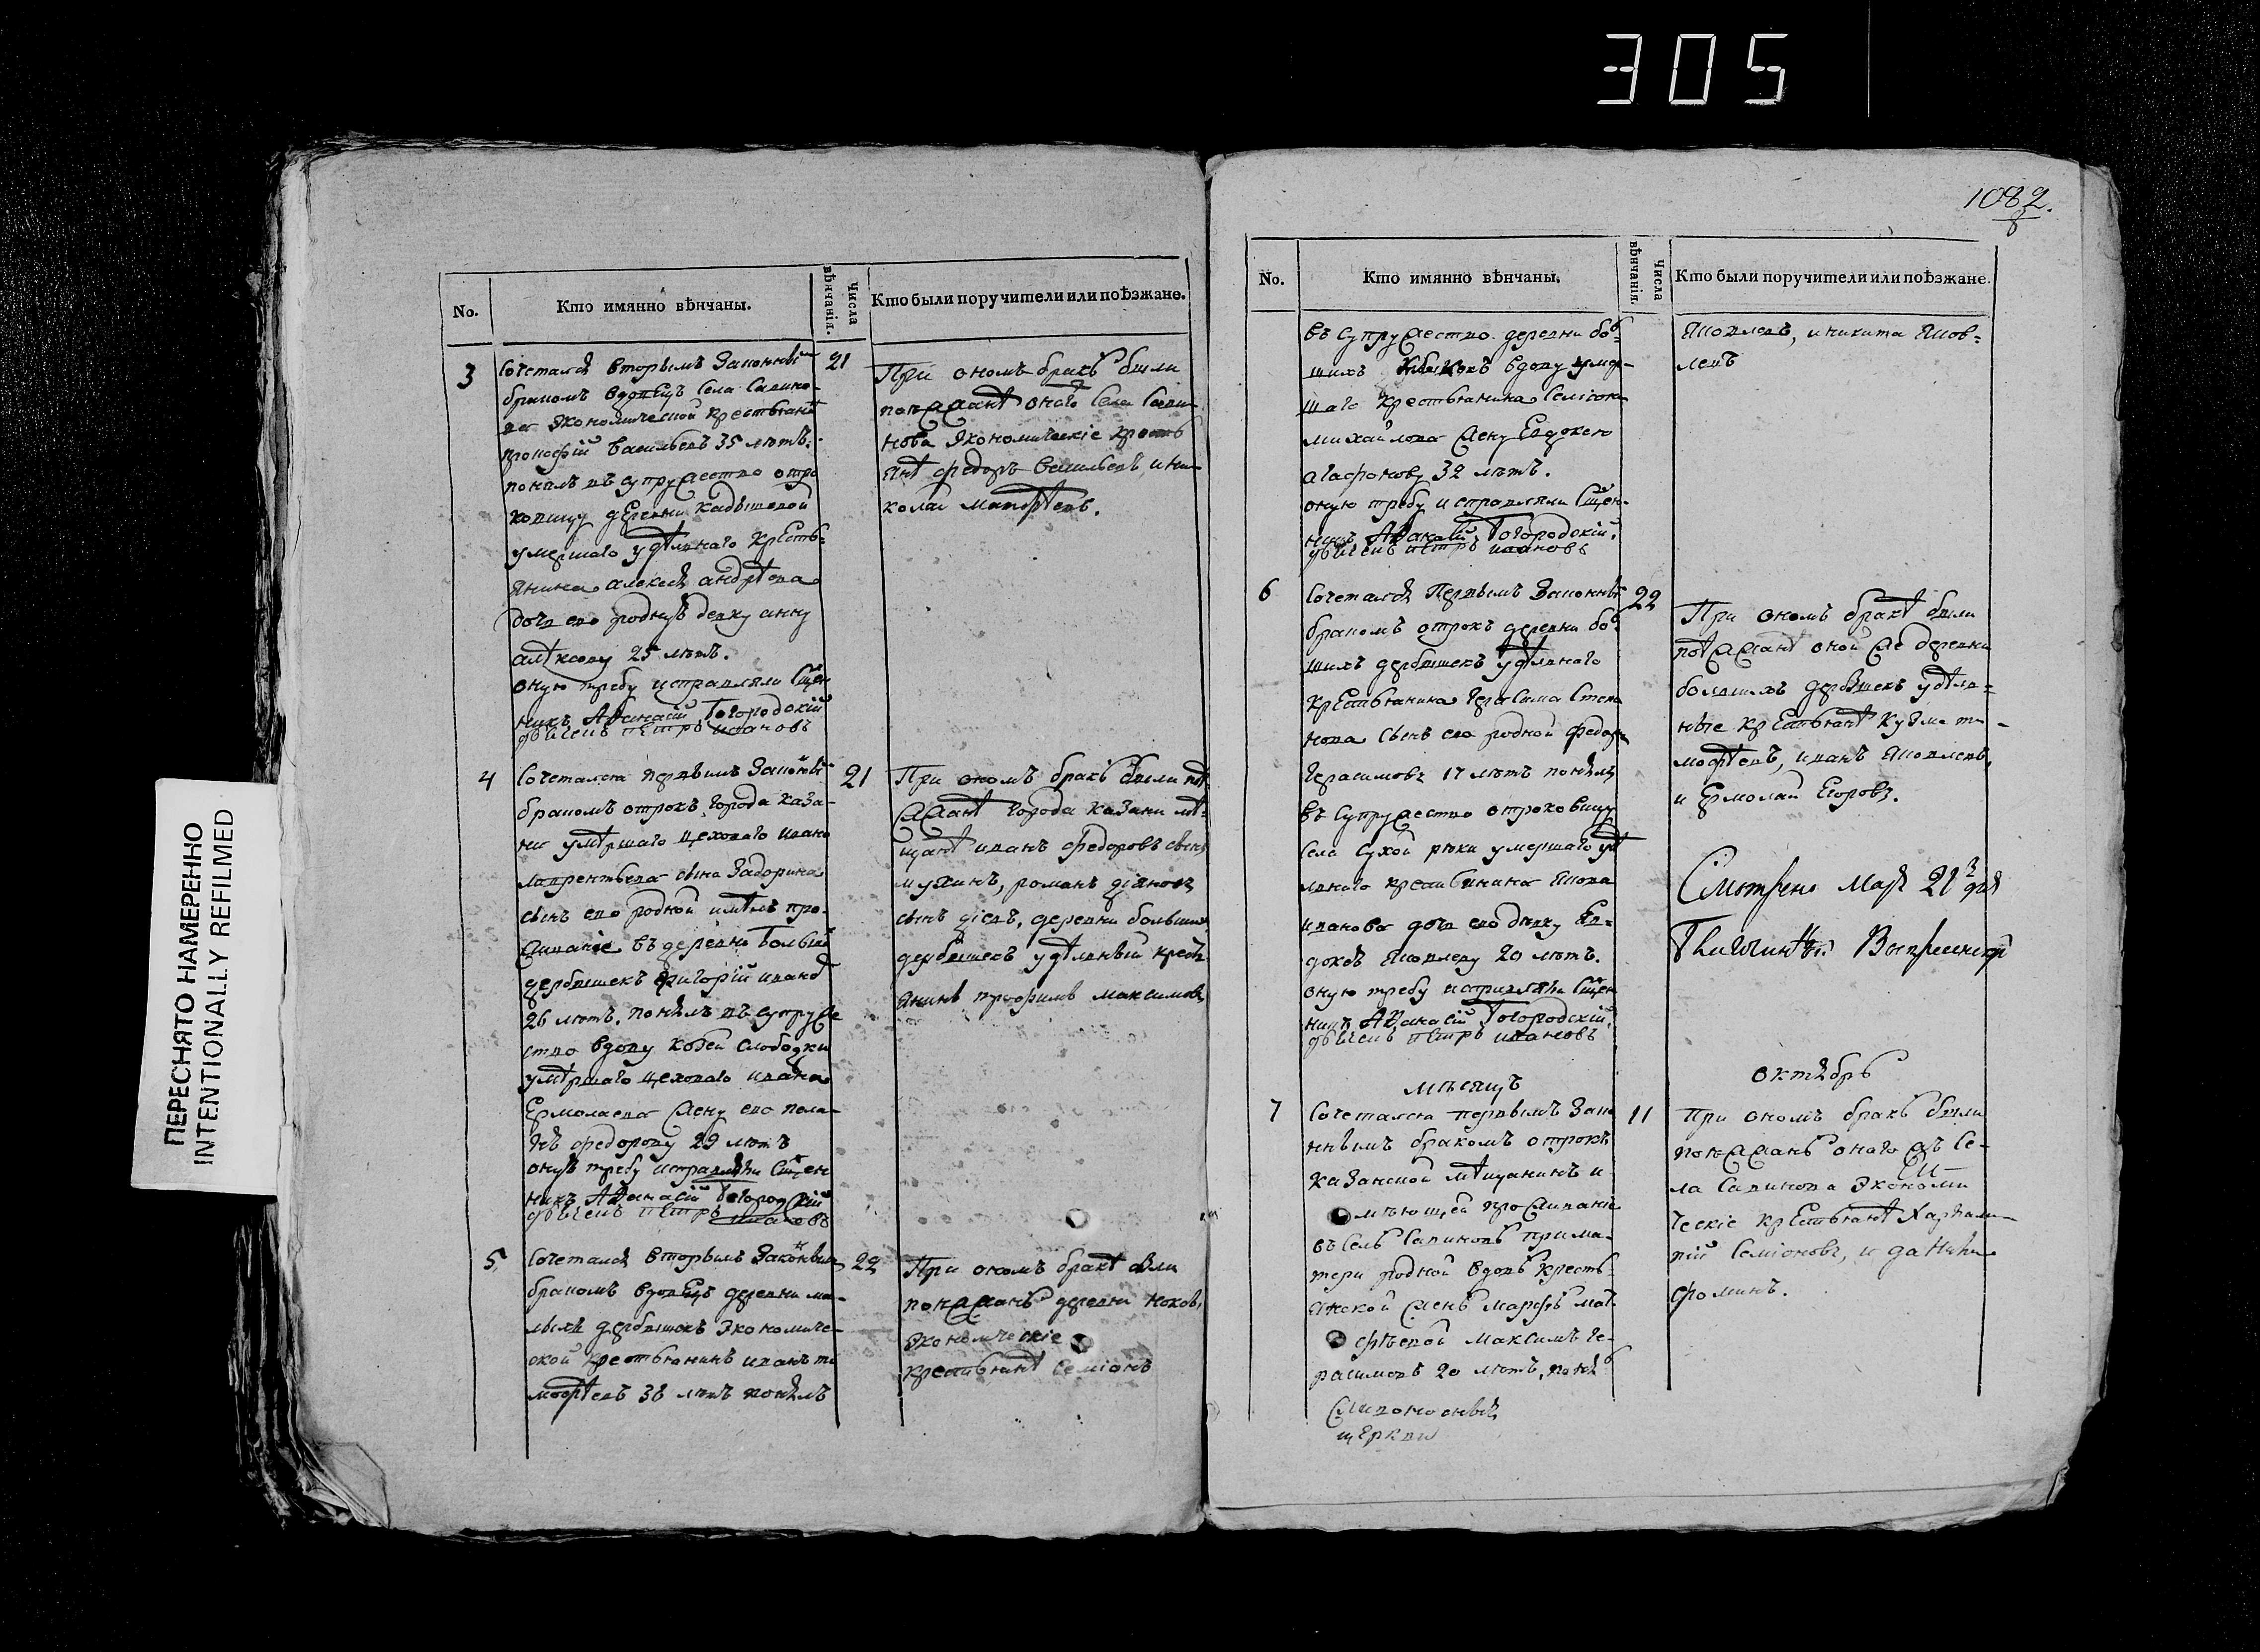 305
1082.
8
ПЕРЕСНЯТО НАМЕРЕННО
INTENTIONALLY REFILMED
No.
Кто имянно вѣнчаны.
Числа вѣнчанія.
Кто были поручители или поѣзжане.
3
Сочетался вторымъ законны
бракомъ вдовецъ села Савино-
ва экономической крестьянинъ
прокофій васильевъ 35 лѣтъ.
понялъ въ супружество отро
ковицу деревни Кадышевой
умершаго удѣлнаго кресть-
янина алексея андрѣева
дочь ево родную девку анну
алѣксеву 25 лѣтъ.
оную требу исправляли Сщен
никъ Аѳанасій Богородскій
дьячекъ петръ ивановъ
21
При ономъ бракѣ были
поѣжжанѣ онаго села Сави-
нова экономическіе кресть
янѣ федоръ васильевъ, ни-
колай матфѣевъ.
4
Сочетался первымъ законны
бракомъ отрокъ города каза-
ни умѣршаго цеховаго ивана
лаврентьева сына Задорина
сынъ ево родной имѣлъ про-
живаніе въ деревнѣ большой
дербышекъ григорій ивановъ
26 лѣтъ. понялъ въ супруже
ство вдову козей слободки
умѣршаго цеховаго ивана
Ермолаева жену ево пела-
гею федорову 29 лѣтъ
оную требу исправляли Сщен
никъ Аѳанасій Богородскій
дьячекъ петръ ивановъ
21
При ономъ бракѣ были поѣ
жжанѣ города казани мѣ-
щанѣ иванъ федоровъ сынъ
романъ
сынъ деревни большихъ
дербышекъ удѣлный кресть-
янинъ трофимъ максимовъ
5
Сочетался вторымъ законнымъ
бракомъ вдовецъ деревни ма-
лыхъ дербышекъ экономиче-
ской крестьянинъ иванъ ти
мофѣевъ 38 лѣтъ понялъ
22
При ономъ бракѣ были
поѣжжанѣ деревни
экономическіе
крестьянѣ Семіонъ
No.
Кто имянно вѣнчаны.
Числа вѣнчанія.
Кто были поручители или поѣзжане.
въ супружество деревни бол-
шихъ вдову умер-
шаго крестьянина Семіона
михайлова жену Евдокею
агафонову 32 лѣтъ.
оную требу исправляли Сщен-
никъ Аѳанасій Богородскій.
дьячекъ петръ ивановъ
Яковлевъ, и никита Яков-
левъ
6
Сочетался Первымъ законны
бракомъ отрокъ деревни бол-
шихъ дербышекъ удѣлнаго
крестьянина герасима Степа
нова сынъ ево родной федоръ
герасимовъ 17 лѣтъ понялъ
въ супружество отроковицу
села сухой рѣки умершаго удѣ
лнаго крестьянина якова
иванова дочь ево девку Ев-
докѣю Яковлеву 20 лѣтъ.
оную требу исправляли Сщен
никъ Аѳанасій Богородскій
дьячекъ петръ ивановъ
22
При ономъ бракѣ были
поѣжжанѣ оной же деревни
большихъ дербышекъ удѣл-
ные крестьянѣ кузма ти-
мофѣевъ, иванъ яковлевъ,
и Ермолай Егоровъ.
Смотрено Мая 21 дня
Благочинный Воскресенскій
мѣсяцъ
октябрь
7
Сочетался первымъ зако
ннымъ бракомъ отрокъ
казанской мѣщанинъ и-
мѣющей проживаніе
въ селѣ Савиновѣ при ма-
тери родной вдовѣ кресть-
янской женѣ марфѣ мат-
фѣевой максимъ ге-
расимовъ 20 лѣтъ, поня
живоносныя
церкви
11
При ономъ бракѣ были
поѣжжанѣ онаго жъ се-
ла Савинова экономи
ческіе крестьянѣ Харлам-
пій Семіоновъ, и данила
фоминъ.